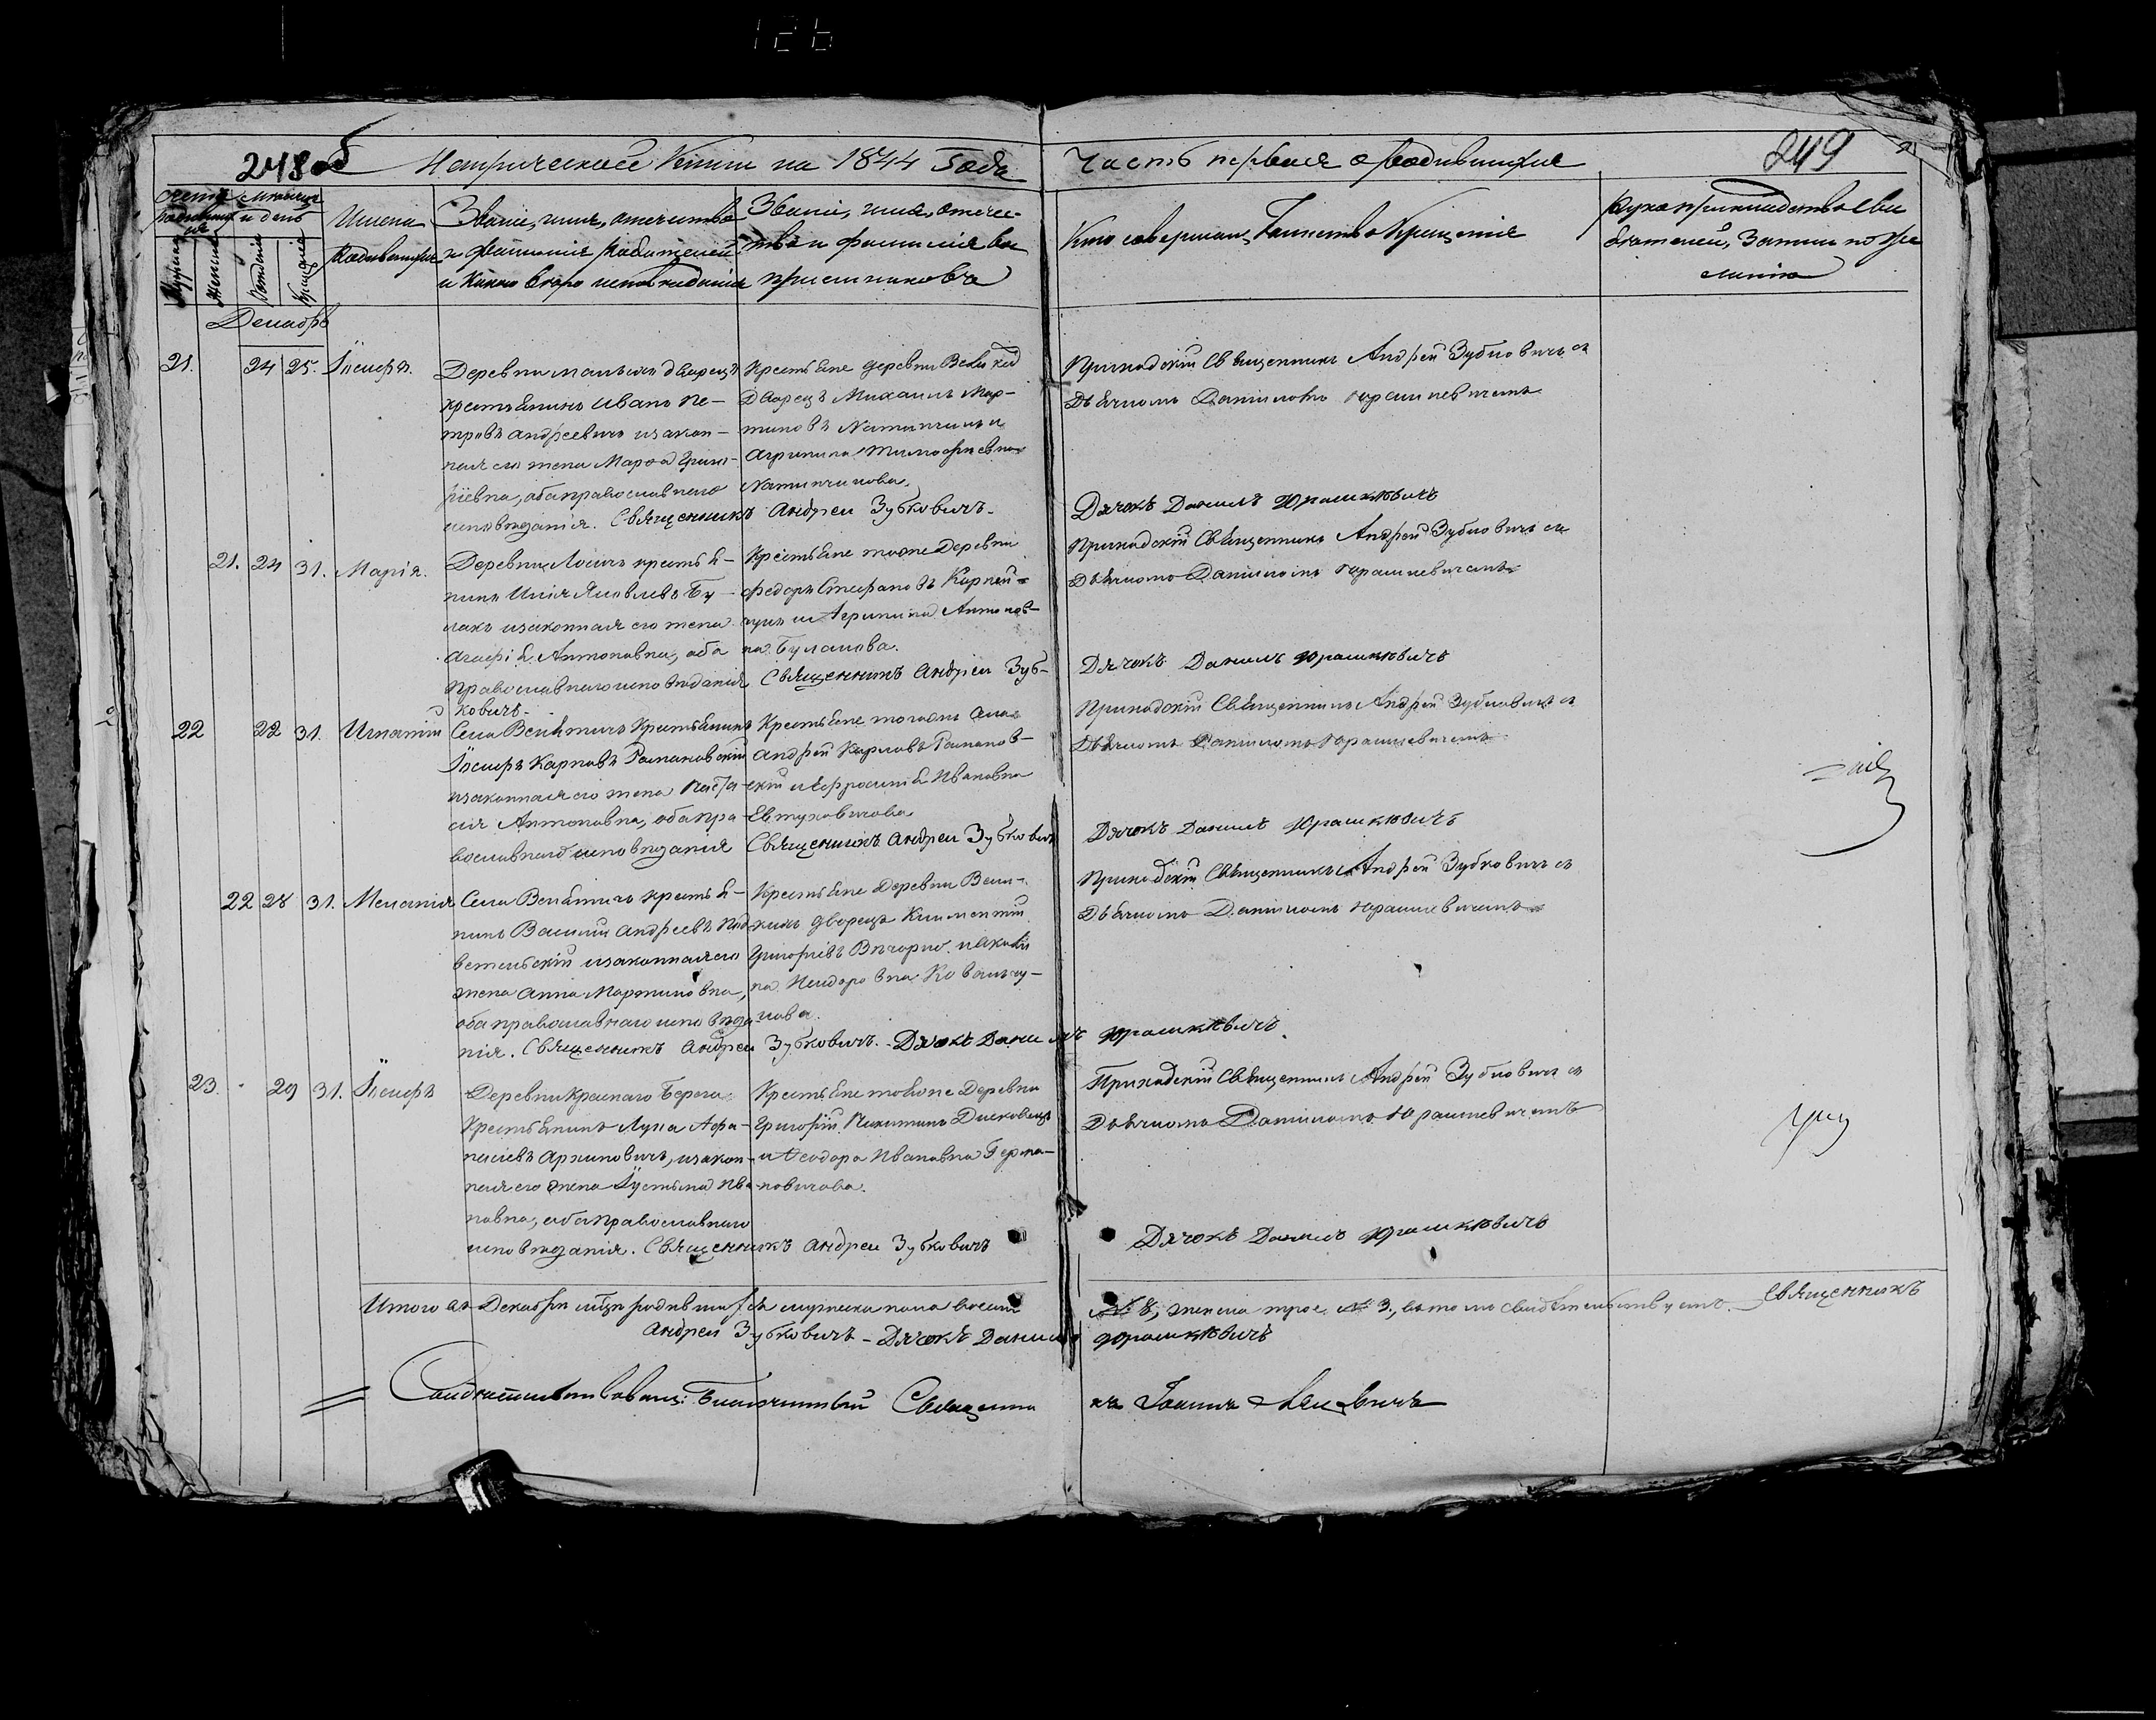 126
248 об Метрической Книги на 1844 Года
Часть первая о родившихся 249
Счетъ родившихся
Мѣсяцъ и день
Мужеска
Женска
Рожденія
Крещенія
Имена
Родившихся
Званіе, имя, отечество
и фамилія Родителей
и какого вѣроисповѣданія
Званіе, имя, отече-
ство и фамилія во
спріемниковъ
Кто совершалъ Таинство Крещенія
Рукоприкладство сви
дѣтелей записи по же
ланію
Декабрь
21. 24 25. Іосифъ.
Деревни малыхъ дворецъ
крестьянинъ Иванъ Пе-
тровъ Андреевичъ и закон-
ная его жена Марѳа Григо-
ріевна, оба православнаго
исповѣданія. Священникъ Андреи Зубковичъ.
Крестьяне деревни Великій
Дворецъ Михаилъ Мар-
тиновъ
Агрипина Тимофеевна
Приходскій Священникъ Андрей Зубковичъ съ
Дьячкомъ Даніиломъ Юрашкевичемъ
Дячокъ Данилъ Юрашкѣвичъ
21. 24 31. Марія.
Деревни Лосичъ крестья-
нинъ Илія Яковлевъ Бу-
лакъ и законная его жена
Агафія Антоновна, оба
православнаго исповѣданія
Крестьяне тоеже Деревни
Федоръ Стефановъ Карпей-
чукъ и Агрипина Антонов-
на Булакова.
Священникъ Андреи Зуб-
ковичъ.
Приходскій Священникъ Андрей Зубковичъ съ
Дьячкомъ Даніиломъ Юрашкевичемъ
Дячокъ Данилъ Юрашкѣвичъ
22 28 31. Игнатій
Села Велятичъ Крестьянинъ
Іосифъ Карповъ Романовскій
и законная его жена Наста-
сія Антоновна, оба пра-
вославнаго исповѣданія
Крестьяне тогоже села
Андрей Карповъ Романов-
скій и Ефросинія Ивановна
Евтуховичова
Священникъ Андреи Зубковичъ
Приходскій Священникъ Андрей Зубковичъ съ
Дьячкомъ Даніиломъ Юрашкевичемъ
Дячокъ Данилъ Юрашкѣвичъ
22 28 31. Меланія
Села Велятичъ крестья-
нинъ Василій Андреевъ Под-
вительскій и законная его
жена Анна Мартиновна,
оба православнаго исповѣда-
нія. Священникъ Андреи Зубковичъ. - Дячокъ Данилъ Юрашкѣвичъ
Крестьяне деревни Вели-
кихъ дворецъ Климентій
Григоріевъ Вечорко и Акили-
на Исидоровна Ковальчу-
кова.
Приходскій Священникъ Андрей Зубковичъ съ
Дьячкомъ Даніиломъ Юрашкевичемъ
23. 29 31. Іосифъ
Деревни Краснаго Берега
Крестьянинъ Лука Афа-
насіевъ Архиповичъ, и закон-
ная его жена Іустина Ива-
новна, оба православнаго
исповѣданія. Священникъ Андреи Зубковичъ
Крестьяне тоеже Деревни
Григорій Никитинъ Дисковецъ
и Ѳеодора Ивановна Герма-
новичова.
Приходскій Священникъ Андрей Зубковичъ съ
Дьячкомъ Даніиломъ Юрашкевичемъ
Дячокъ Данилъ Юрашкѣвичъ
Итого въ Декабрѣ мѣсяцѣ родившихся мужеска пола восемь № 8, женска трое № 3., въ томъ свидѣтельствуемъ. Священникъ
Андреи Зубковичъ - Дячокъ Данилъ Юрашкѣвичъ
Свидѣтельствовалъ: Благочинный Священникъ Іоаннъ